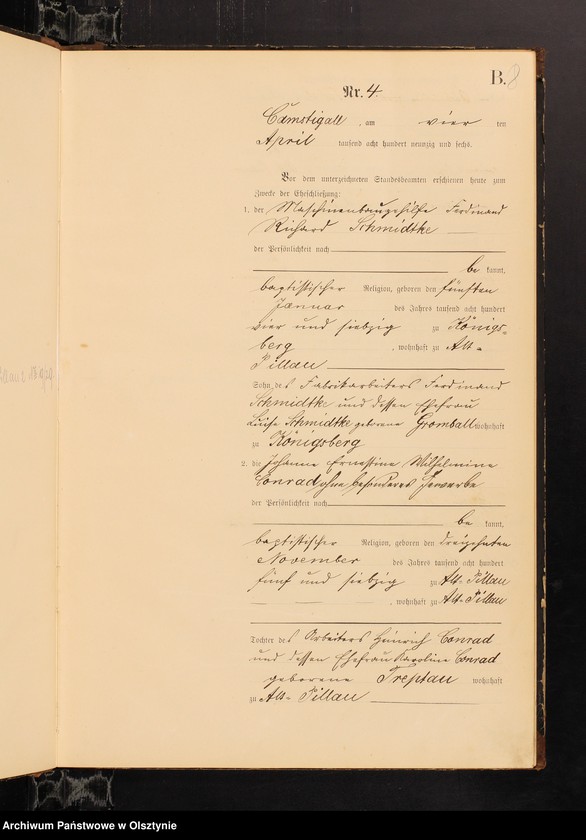 B.
Nr. 4
Camstigall, am vier ten
April tausend acht hundert neunzig und sechs.
Vor dem unterzeichneten Standesbeamten erschienen heute zum
Zwecke der Eheschließung:
1. der Maschinenbaugehilfe Ferdinand
Richard Schmidtke
der Persönlichkeit nach
be kannt,
baptistischer Religion, geboren den fünften
Januar des Jahres tausend acht hundert
vier und siebzig zu Königs-
berg, wohnhaft zu Alt-
Pillau
Sohn des Fabrikarbeiters Ferdinand
Schmidtke und dessen Ehefrau
Luise Schmidtke geborene Gromball wohnhaft
zu Königsberg
2. die Johanne Ernestine Wilhelmine
Conrad ohne besonderes Gewerbe
der Persönlichkeit nach
be kannt,
baptistischer Religion, geboren den dreizehnten
November des Jahres tausend acht hundert
fünf und siebzig zu Alt-Pillau
, wohnhaft zu Alt-Pillau
Tochter des Arbeiters Heinrich Conrad
und dessen Ehefrau Karoline Conrad
geborene Treptau wohnhaft
zu Alt-Pillau
Archiwum Państwowe w Olsztynie